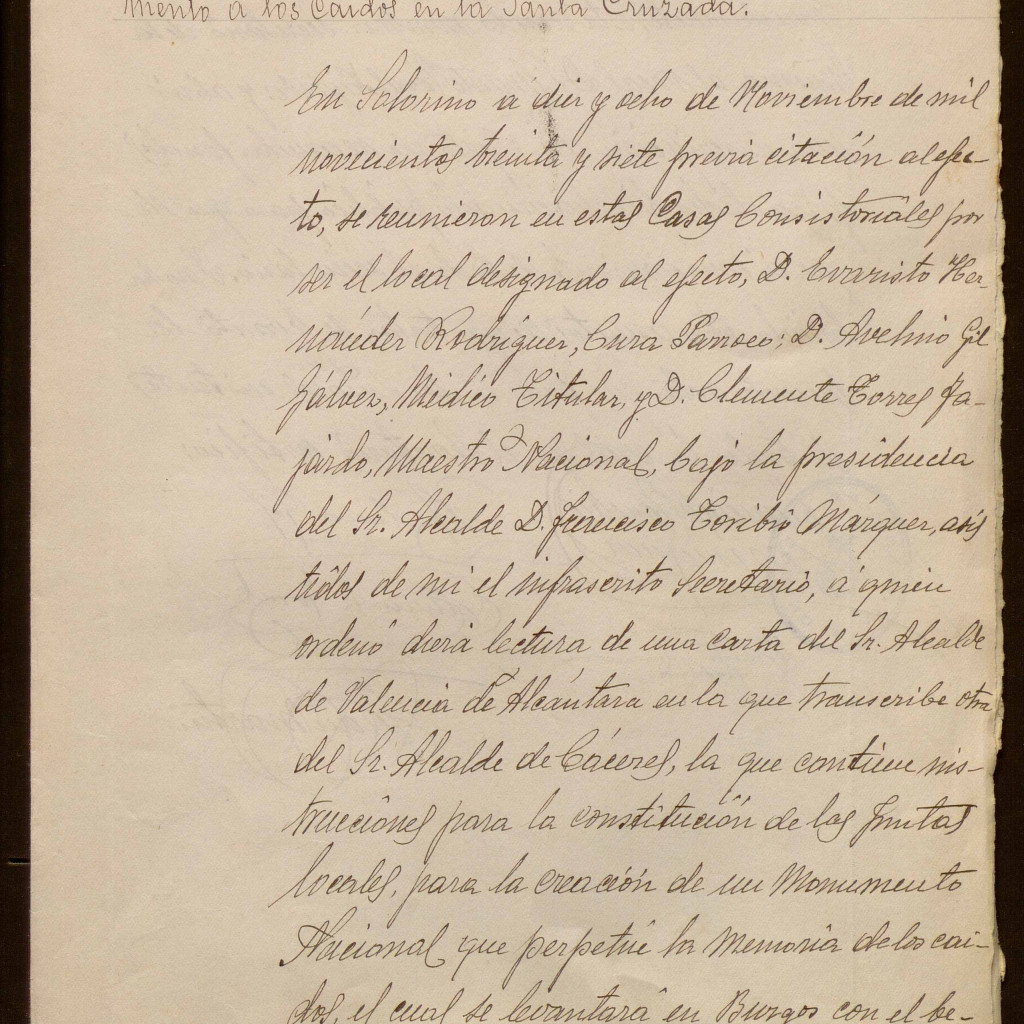 mento a los Caidos en la Santa Cruzada.
En Salorino a diez y ocho de Noviembre de mil
novecientos treinta y siete previa citación al efec-
to, se reunieron en estas Casas Consistoriales por
ser el local designado al efecto, D. Evaristo Her-
nández Rodriguez, Cura Parroco; D. Avelino Gil
Gálvez, Médico Titular, y D. Clemente Torres Fa-
jardo, Maestro Nacional, bajo la presidencia
del Sr. Alcalde D. Francisco Toribio Márquez, asis
tidos de mi el infrascrito Secretario, á quien
ordenó diera lectura de una carta del Sr. Alcalde
de Valencia de Alcántara en la que transcribe otra
del Sr. Alcalde de Cáceres, la que contiene ins-
trucciones para la constitución de las Juntas
locales, para la creación de un Monumento
Nacional que perpetúe la memoria de los cai-
dos, el cual se levantará en Burgos con el be-